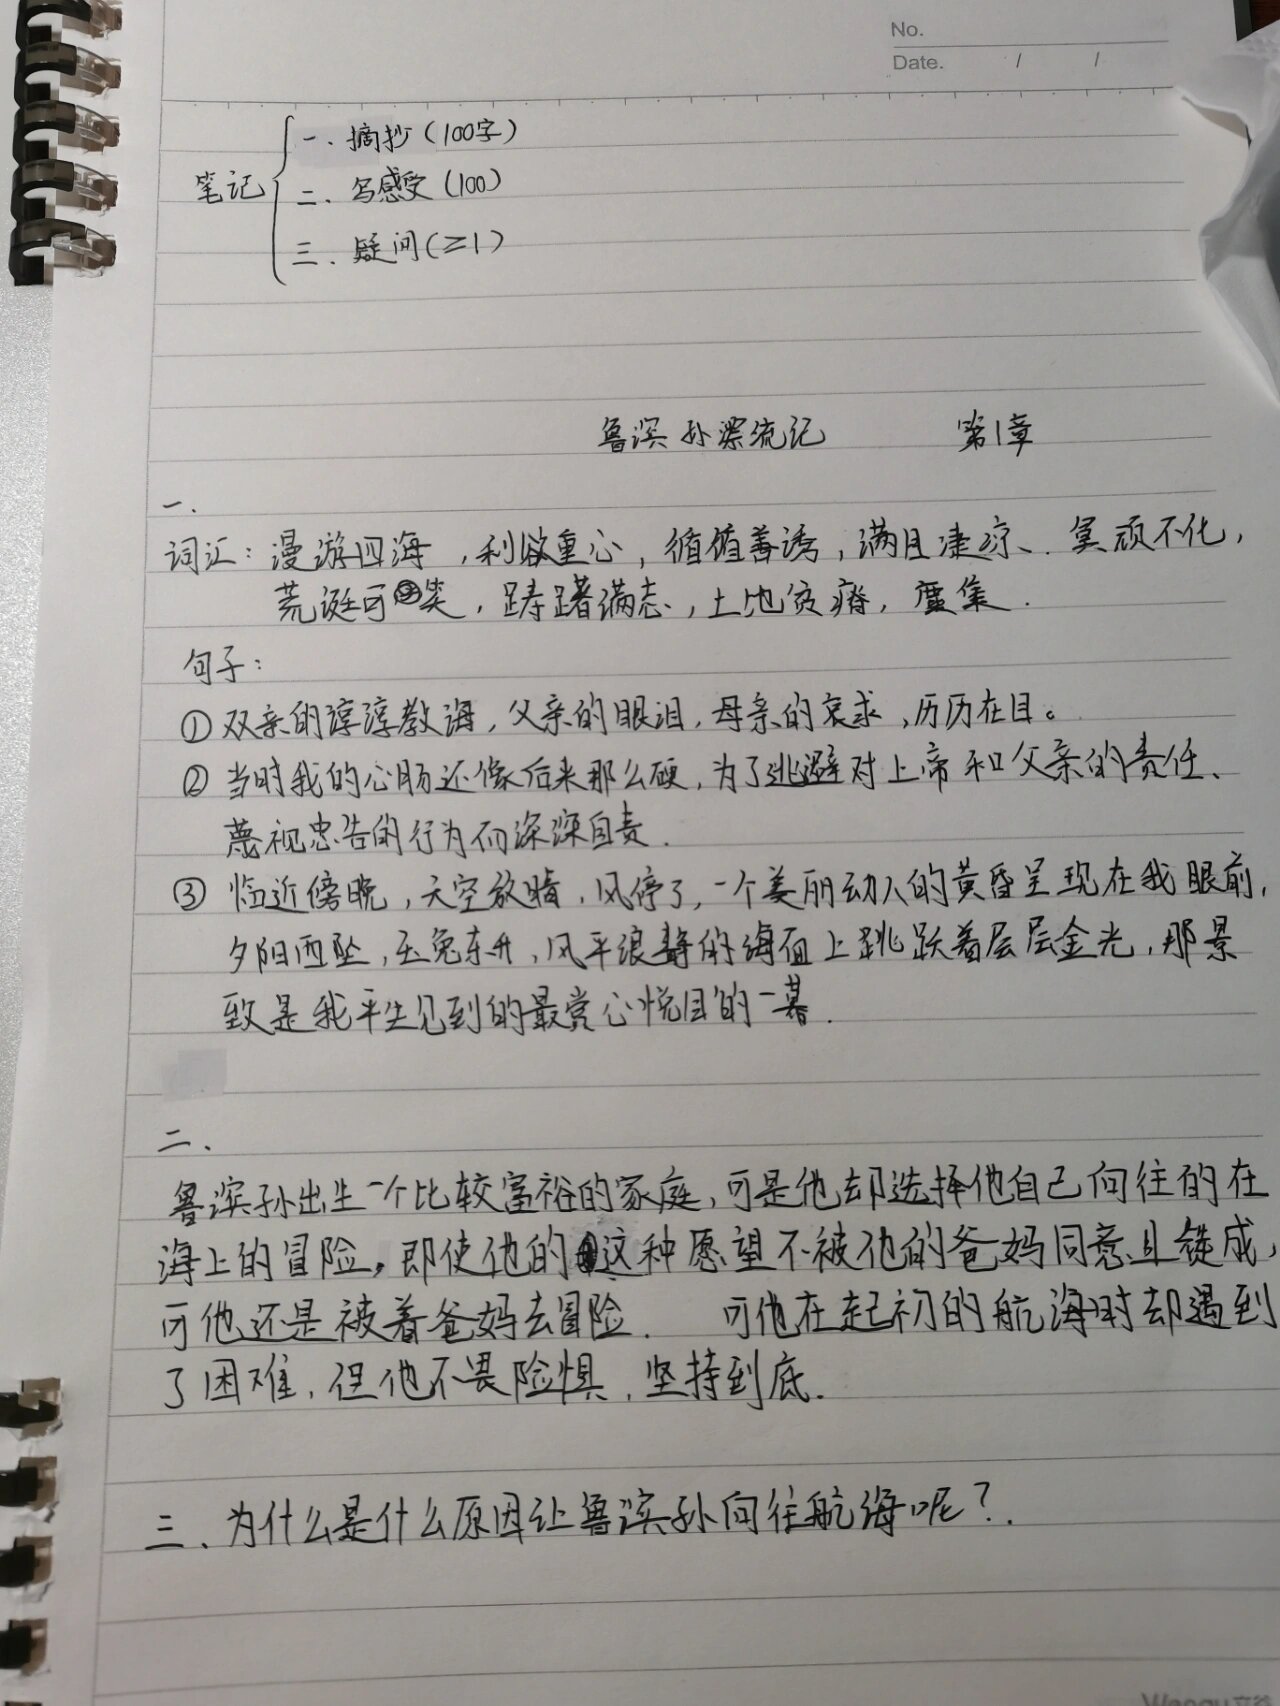 No.
Date. / /
笔记
一、摘抄(100字)
二、写感受(100)
三、疑问(≥1)
鲁滨孙漂流记 第1章
一.
词汇:漫游四海,利欲重心,循循善诱,满目凄凉、冥顽不化,
荒诞可笑,踌躇满志,土地贫瘠,麇集.
句子:
①双亲的谆谆教诲,父亲的眼泪,母亲的哀求,历历在目。
②当时我的心肠还像后来那么硬,为了逃避对上帝和父亲的责任、
蔑视忠告的行为而深深自责.
③临近傍晚,天空放晴,风停了,一个美丽动人的黄昏呈现在我眼前,
夕阳西坠,玉兔东升,风平浪静的海面上跳跃着层层金光,那景
致是我平生见到的最赏心悦目的一幕.
二.
鲁滨孙出生一个比较富裕的家庭,可是他却选择他自己向往的在
海上的冒险,即使他的这种愿望不被他的爸妈同意且赞成,
可他还是被着爸妈去冒险. 可他在起初的航海时却遇到
了困难,但他不畏险惧,坚持到底.
三、为什么是什么原因让鲁滨孙向往航海呢?.